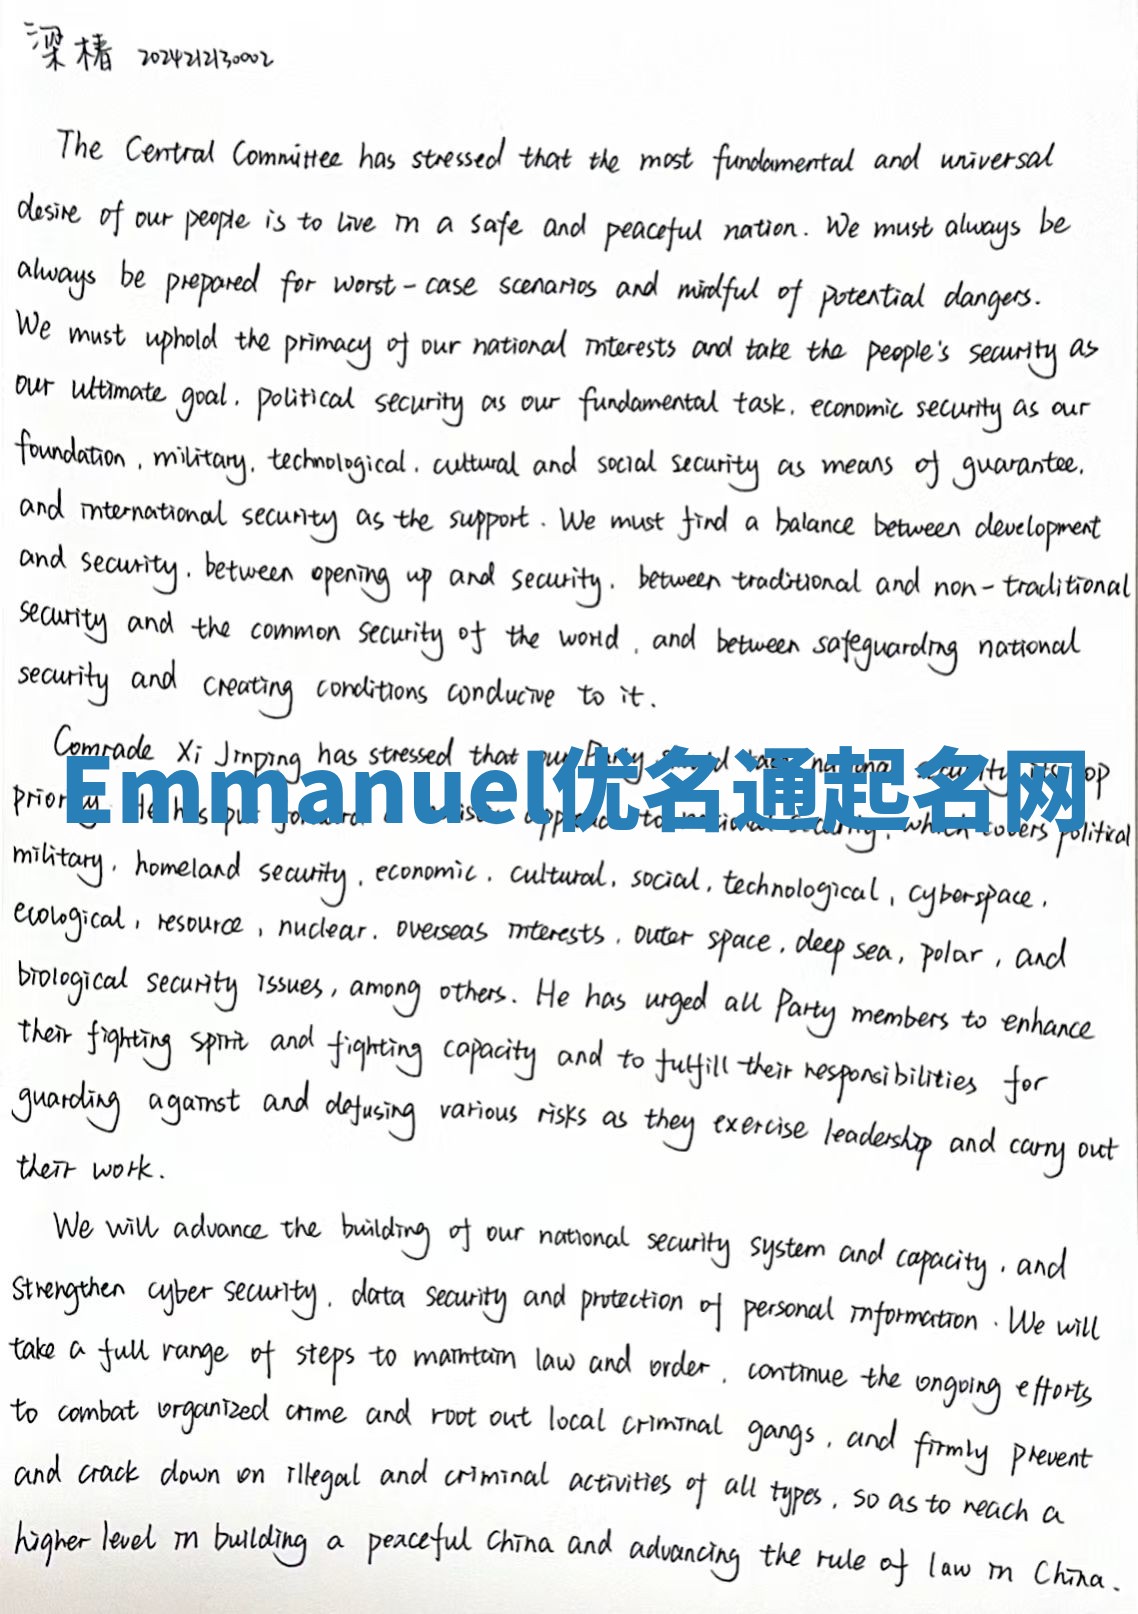 梁椿 2024212130002
The Central Committee has stressed that the most fundamental and universal
desire of our people is to live in a safe and peaceful nation. We must always be
always be prepared for worst-case scenarios and mindful of potential dangers.
We must uphold the primacy of our national interests and take the people's security as
our ultimate goal, political security as our fundamental task, economic security as our
foundation, military, technological, cultural and social security as means of guarantee,
and international security as the support. We must find a balance between development
and security, between opening up and security, between traditional and non-traditional
security and the common security of the world, and between safeguarding national
security and creating conditions conducive to it.
Comrade Xi Jinping has stressed that our Party national security its top
Emmanuel优名通起名网
priority. He has put to national security, which covers political
military, homeland security, economic, cultural, social, technological, cyberspace,
ecological, resource, nuclear, overseas interests, outer space, deep sea, polar, and
biological security issues, among others. He has urged all Party members to enhance
their fighting spirit and fighting capacity and to fulfill their responsibilities for
guarding against and defusing various risks as they exercise leadership and carry out
their work.
We will advance the building of our national security system and capacity, and
strengthen cyber security, data security and protection of personal information. We will
take a full range of steps to maintain law and order, continue the ongoing efforts
to combat organized crime and root out local criminal gangs, and firmly prevent
and crack down on illegal and criminal activities of all types, so as to reach a
higher level in building a peaceful China and advancing the rule of law in China.